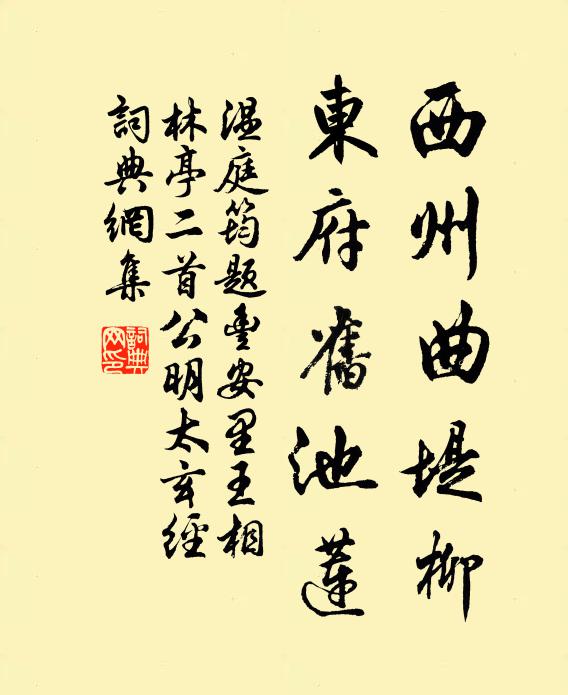 西州曲堤柳
東府舊池蓮
溫庭筠題豐安里王相
林亭二首公明太玄經
詞典網集
詞典網印